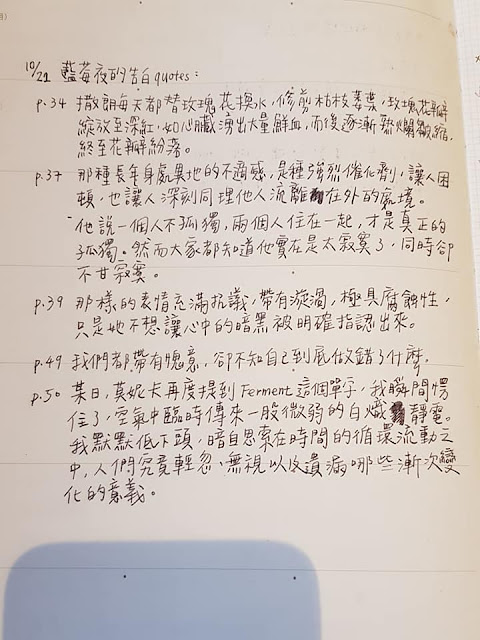 10/21 藍莓夜的告白quotes:
p.34 撒朗每天都替玫瑰花換水,修剪枯枝萎葉,玫瑰花瓣
綻放至深紅,如心臟湧出大量鮮血,而後逐漸熟爛皺縮,
終至花瓣紛落。
p.37 那種長年身處異地的不適感,是種強烈催化劑,讓人困
頓,也讓人深刻同理他人流離在外的處境。
他說一個人不孤獨,兩個人住在一起,才是真正的
孤獨。然而大家都知道他實在是太寂寞了,同時卻
不甘寂寞。
p.39 那樣的表情充滿抗議,帶有漩渦,極具腐蝕性,
只是她不想讓心中的暗黑被明確指認出來。
p.49 我們都帶有愧意,卻不知自己到底做錯了什麼。
p.50 某日,莫妮卡再度提到Ferment這個單字,我瞬間愣
住了,空氣中臨時傳來一股微弱的白熾靜電。
我默默低下頭,暗自思索在時間的循環流動之
中,人們究竟輕忽、無視以及遺漏哪些漸次變
化的意義。